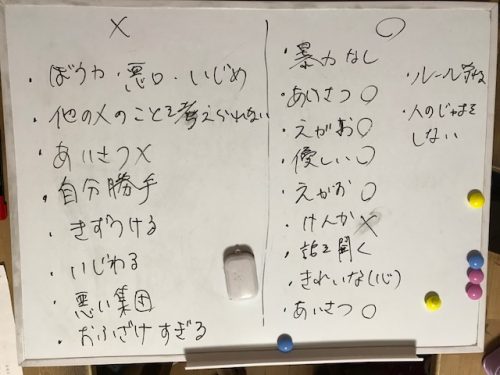 ×
・ぼう力・悪口・いじめ
・他の人のことを考えられない
・あいさつ×
・自分勝手
・きずつける
・いじわる
・悪い集団
・おふざけすぎる
○
・暴力なし
・あいさつ○
・えがお○
・優しい○
・えがお○
・けんか×
・話を聞く
・きれいな(心)
・あいさつ○
・ルール
・人のじゃまを
しない